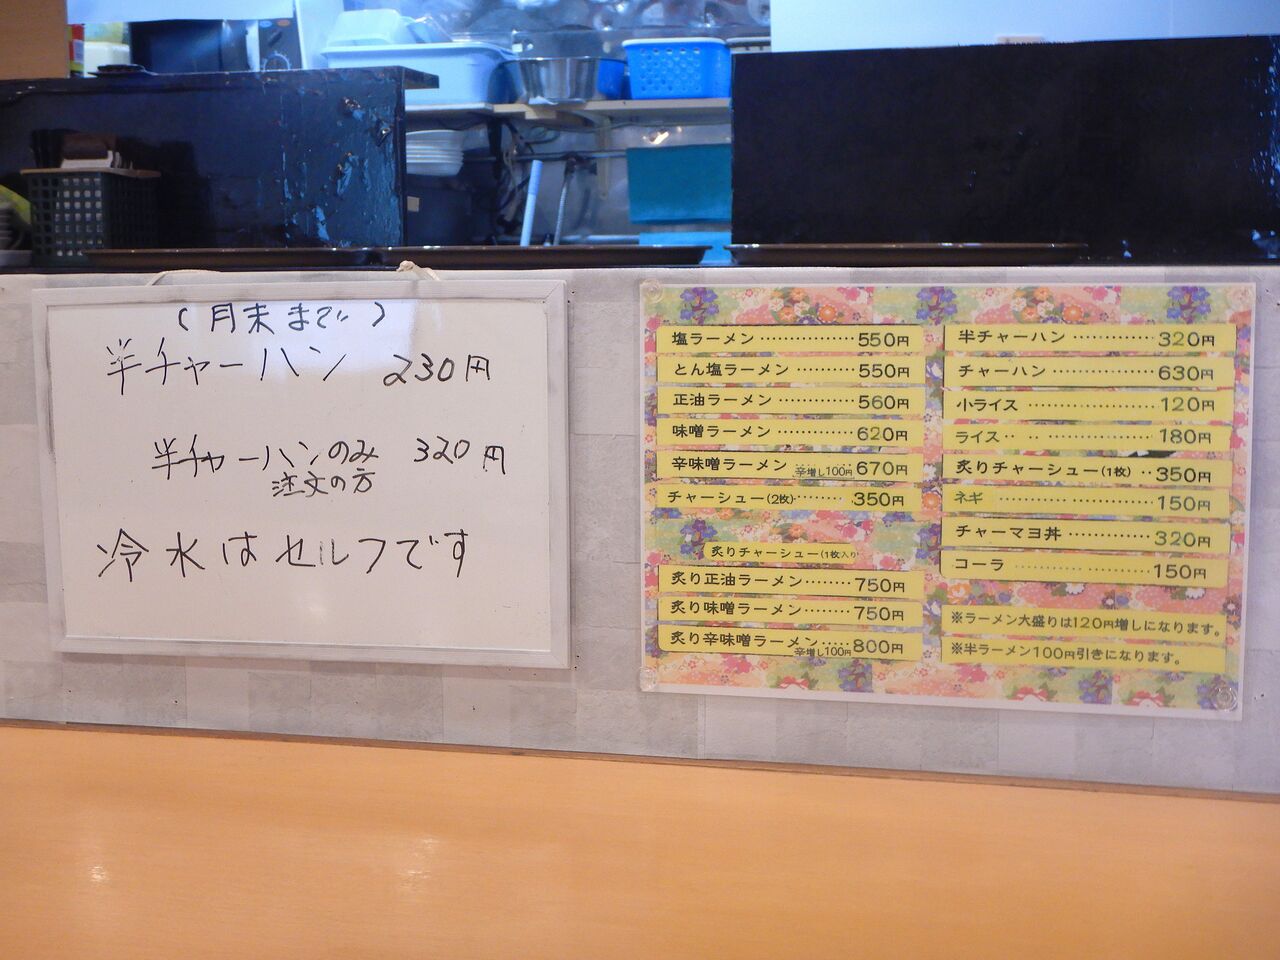 (月末まで)
半チャーハン 230円
半チャーハンのみ 320円
注文の方
冷水はセルフです
塩ラーメン 550円
とん塩ラーメン 550円
正油ラーメン 560円
味噌ラーメン 620円
辛味噌ラーメン 辛増し100円 670円
チャーシュー(2枚) 350円
炙りチャーシュー(1枚入り)
炙り正油ラーメン 750円
炙り味噌ラーメン 750円
炙り辛味噌ラーメン 辛増し100円 800円
半チャーハン 320円
チャーハン 630円
小ライス 120円
ライス 180円
炙りチャーシュー(1枚) 350円
ネギ 150円
チャーマヨ丼 320円
コーラ 150円
※ラーメン大盛りは120円増しになります。
※半ラーメン100円引きになります。